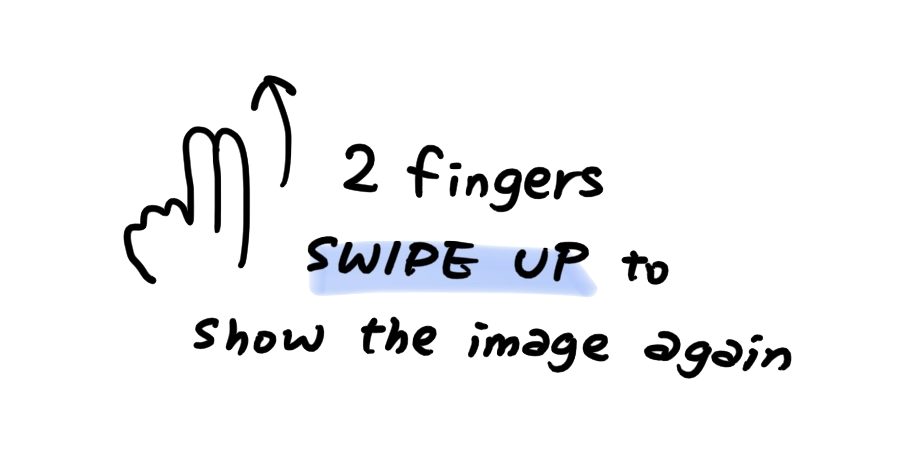 2 fingers
SWIPE UP to
show the image again